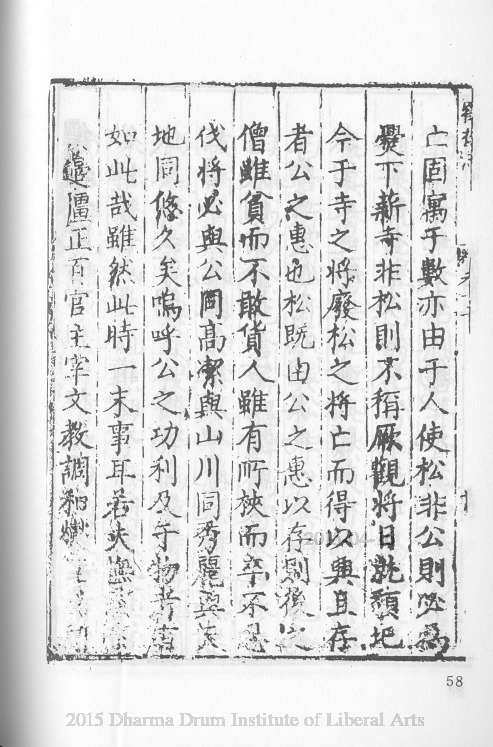 亡固寓于數亦由于人使松非公則必為
爨下薪寺非松則不稱厥觀將日就頹圮
今于寺之將廢松之將亡而得以興且存
者公之惠也松既由公之惠以存則後之
僧雖貧而不敢貨人雖有所挾而卒不忍
伐將必與公同高潔與山川同秀麗與天
地同悠久矣嗚呼公之功利及于物者
如此哉雖然此時一末事耳若夫撫
廬正百官主宰文教調和
58
2015 Dharma Drum Institute of Liberal Arts